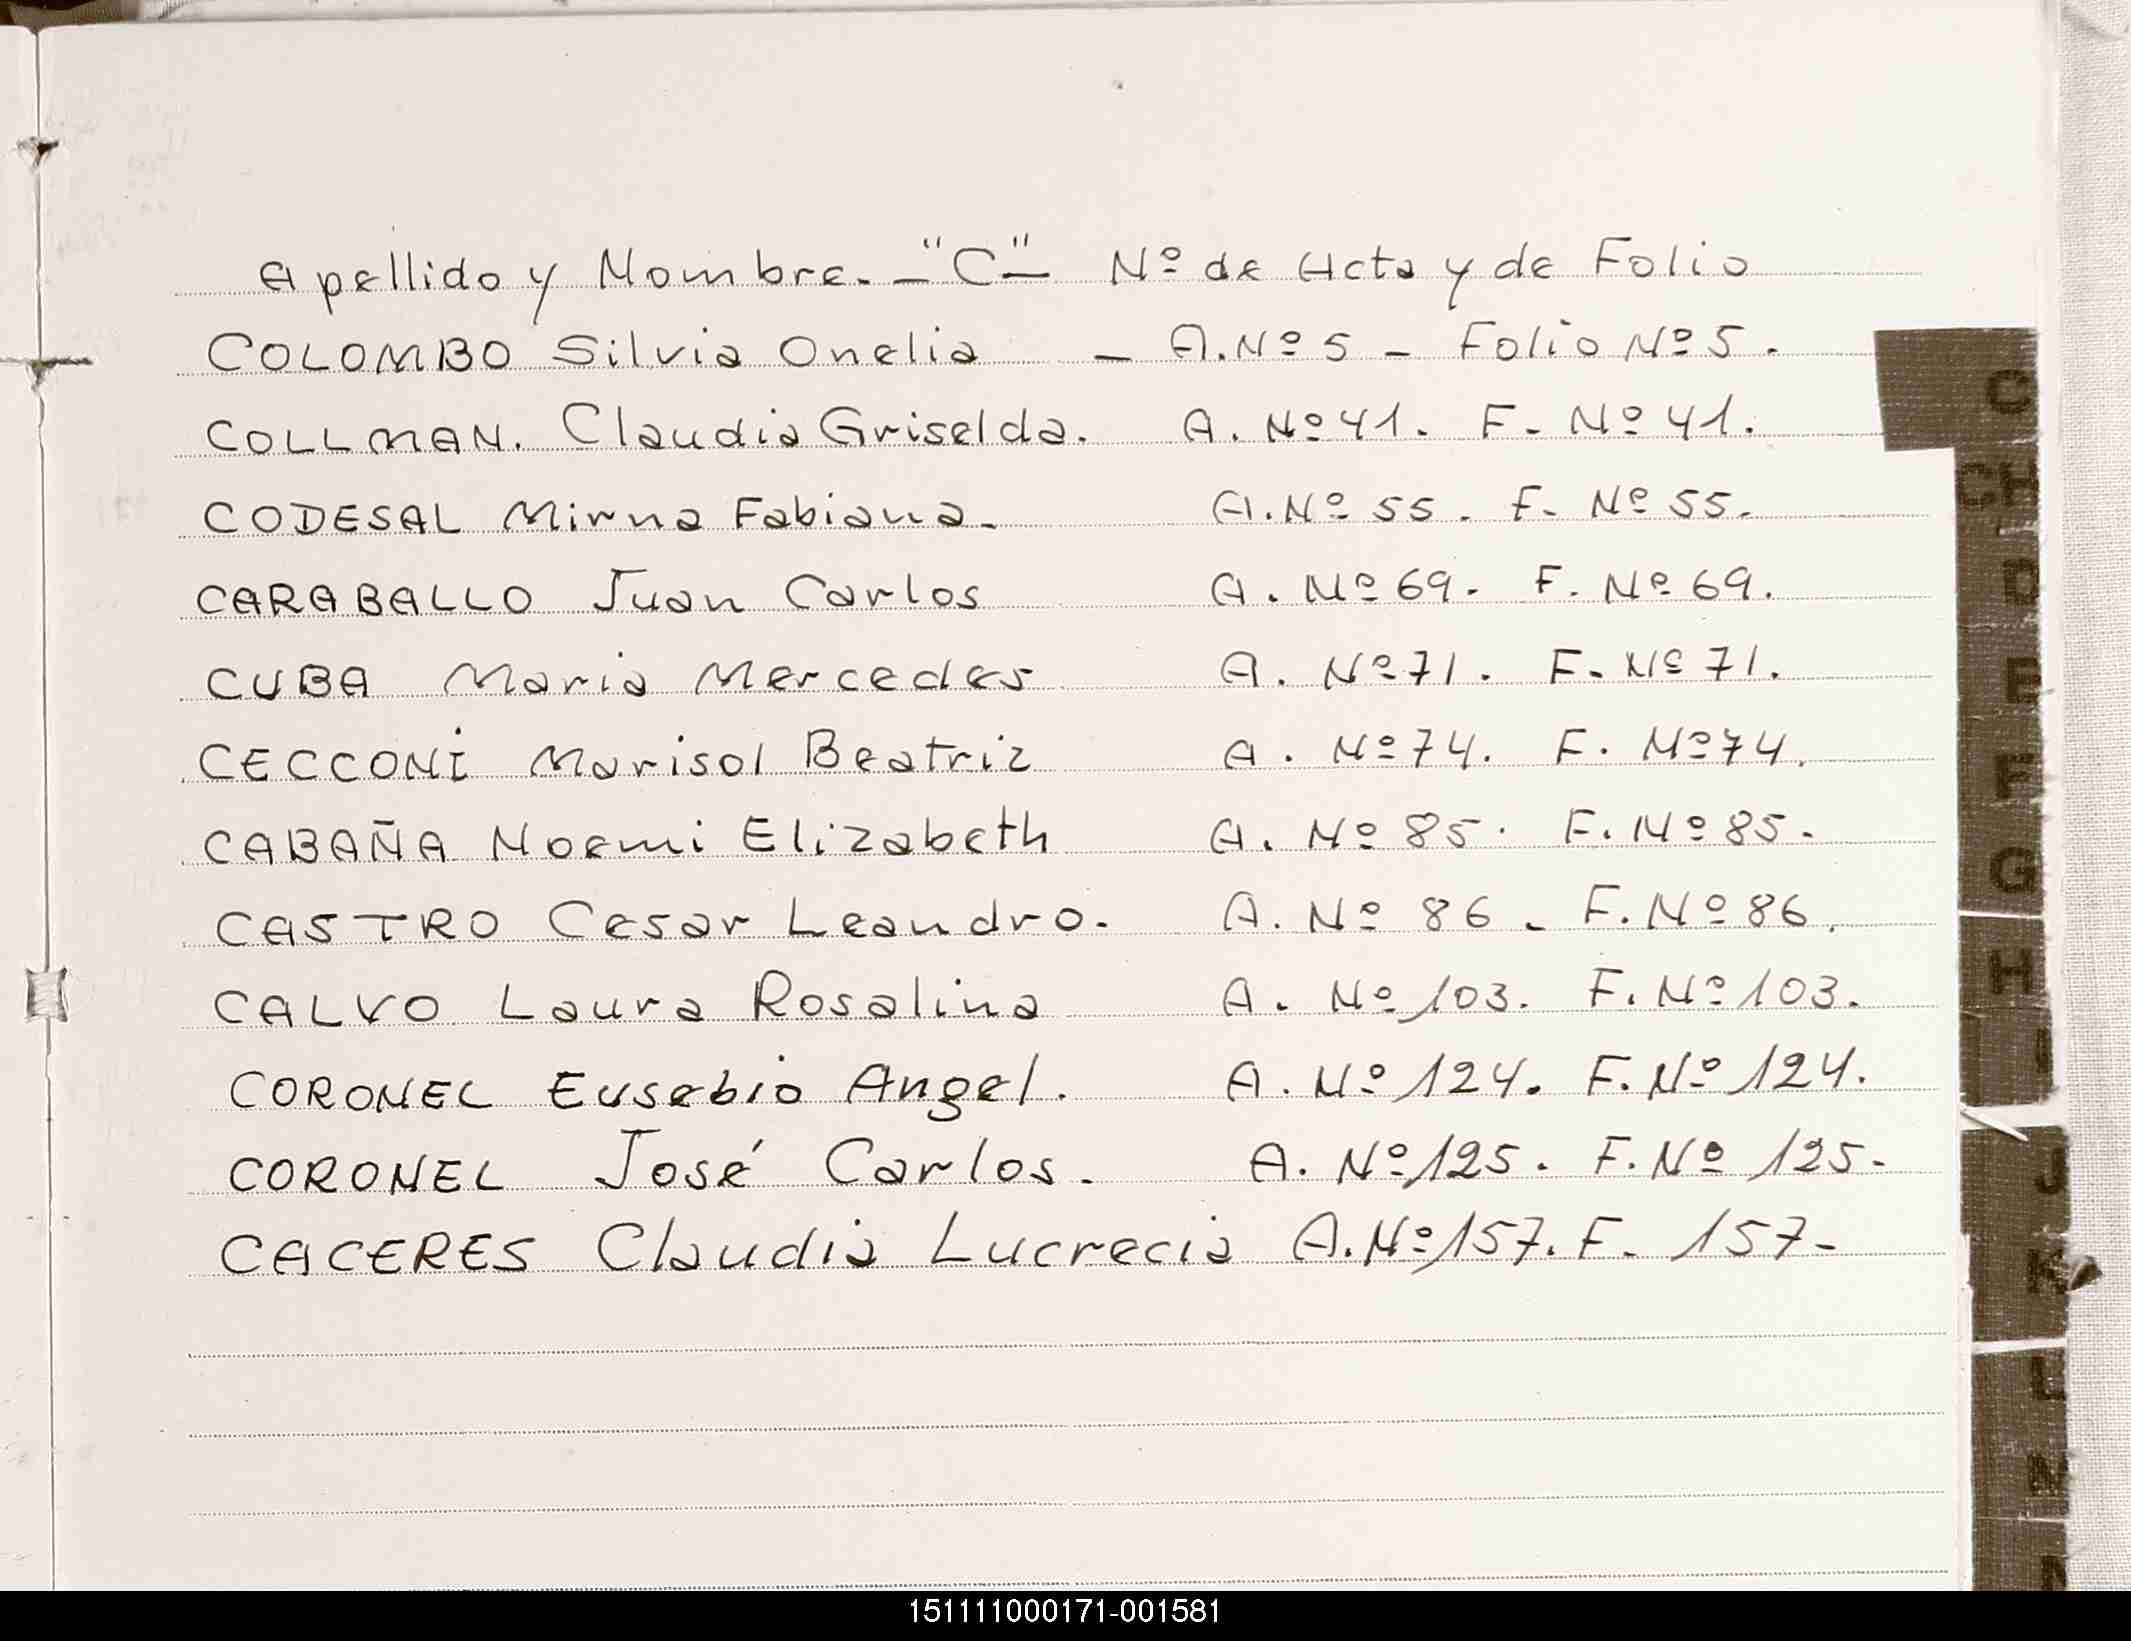 Apellido y Nombre. - "C" - Nº de Acta y de Folio
COLOMBO Silvia Onelia - A. Nº 5 - Folio Nº 5.
COLLMAN. Claudia Griselda. A. Nº 41. F. Nº 41.
CODESAL Mirna Fabiana. A. Nº 55. F. Nº 55.
CARABALLO Juan Carlos A. Nº 69. F. Nº 69.
CUBA Maria Mercedes A. Nº 71. F. Nº 71.
CECCONI Marisol Beatriz A. Nº 74. F. Nº 74.
CABAÑA Noemi Elizabeth A. Nº 85. F. Nº 85.
CASTRO Cesar Leandro. A. Nº 86. F. Nº 86.
CALVO Laura Rosalina A. Nº 103. F. Nº 103.
CORONEL Eusebio Angel. A. Nº 124. F. Nº 124.
CORONEL José Carlos. A. Nº 125. F. Nº 125.
CACERES Claudia Lucrecia A. Nº 157. F. 157-
C
CH
D
E
F
G
H
I
J
K
L
M
N
151111000171-001581